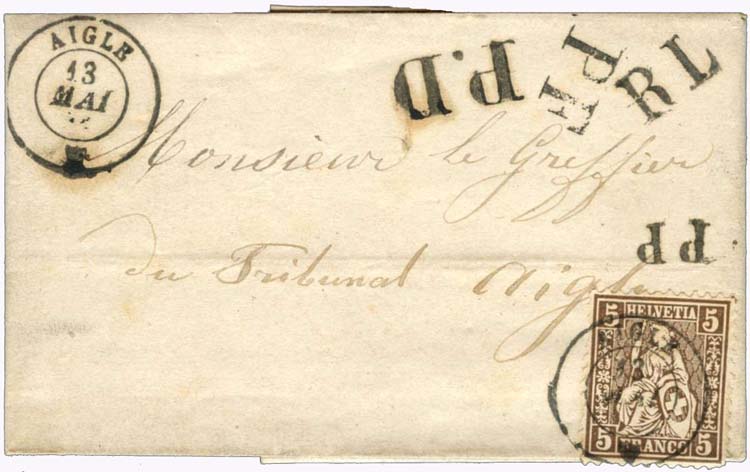 AIGLE
13
MAI
P.D
PF
RL
Monsieur le Greffier
PP
du Tribunal Aigle
5 HELVETIA 5
AIGLE
13
MAI
5 FRANCO 5